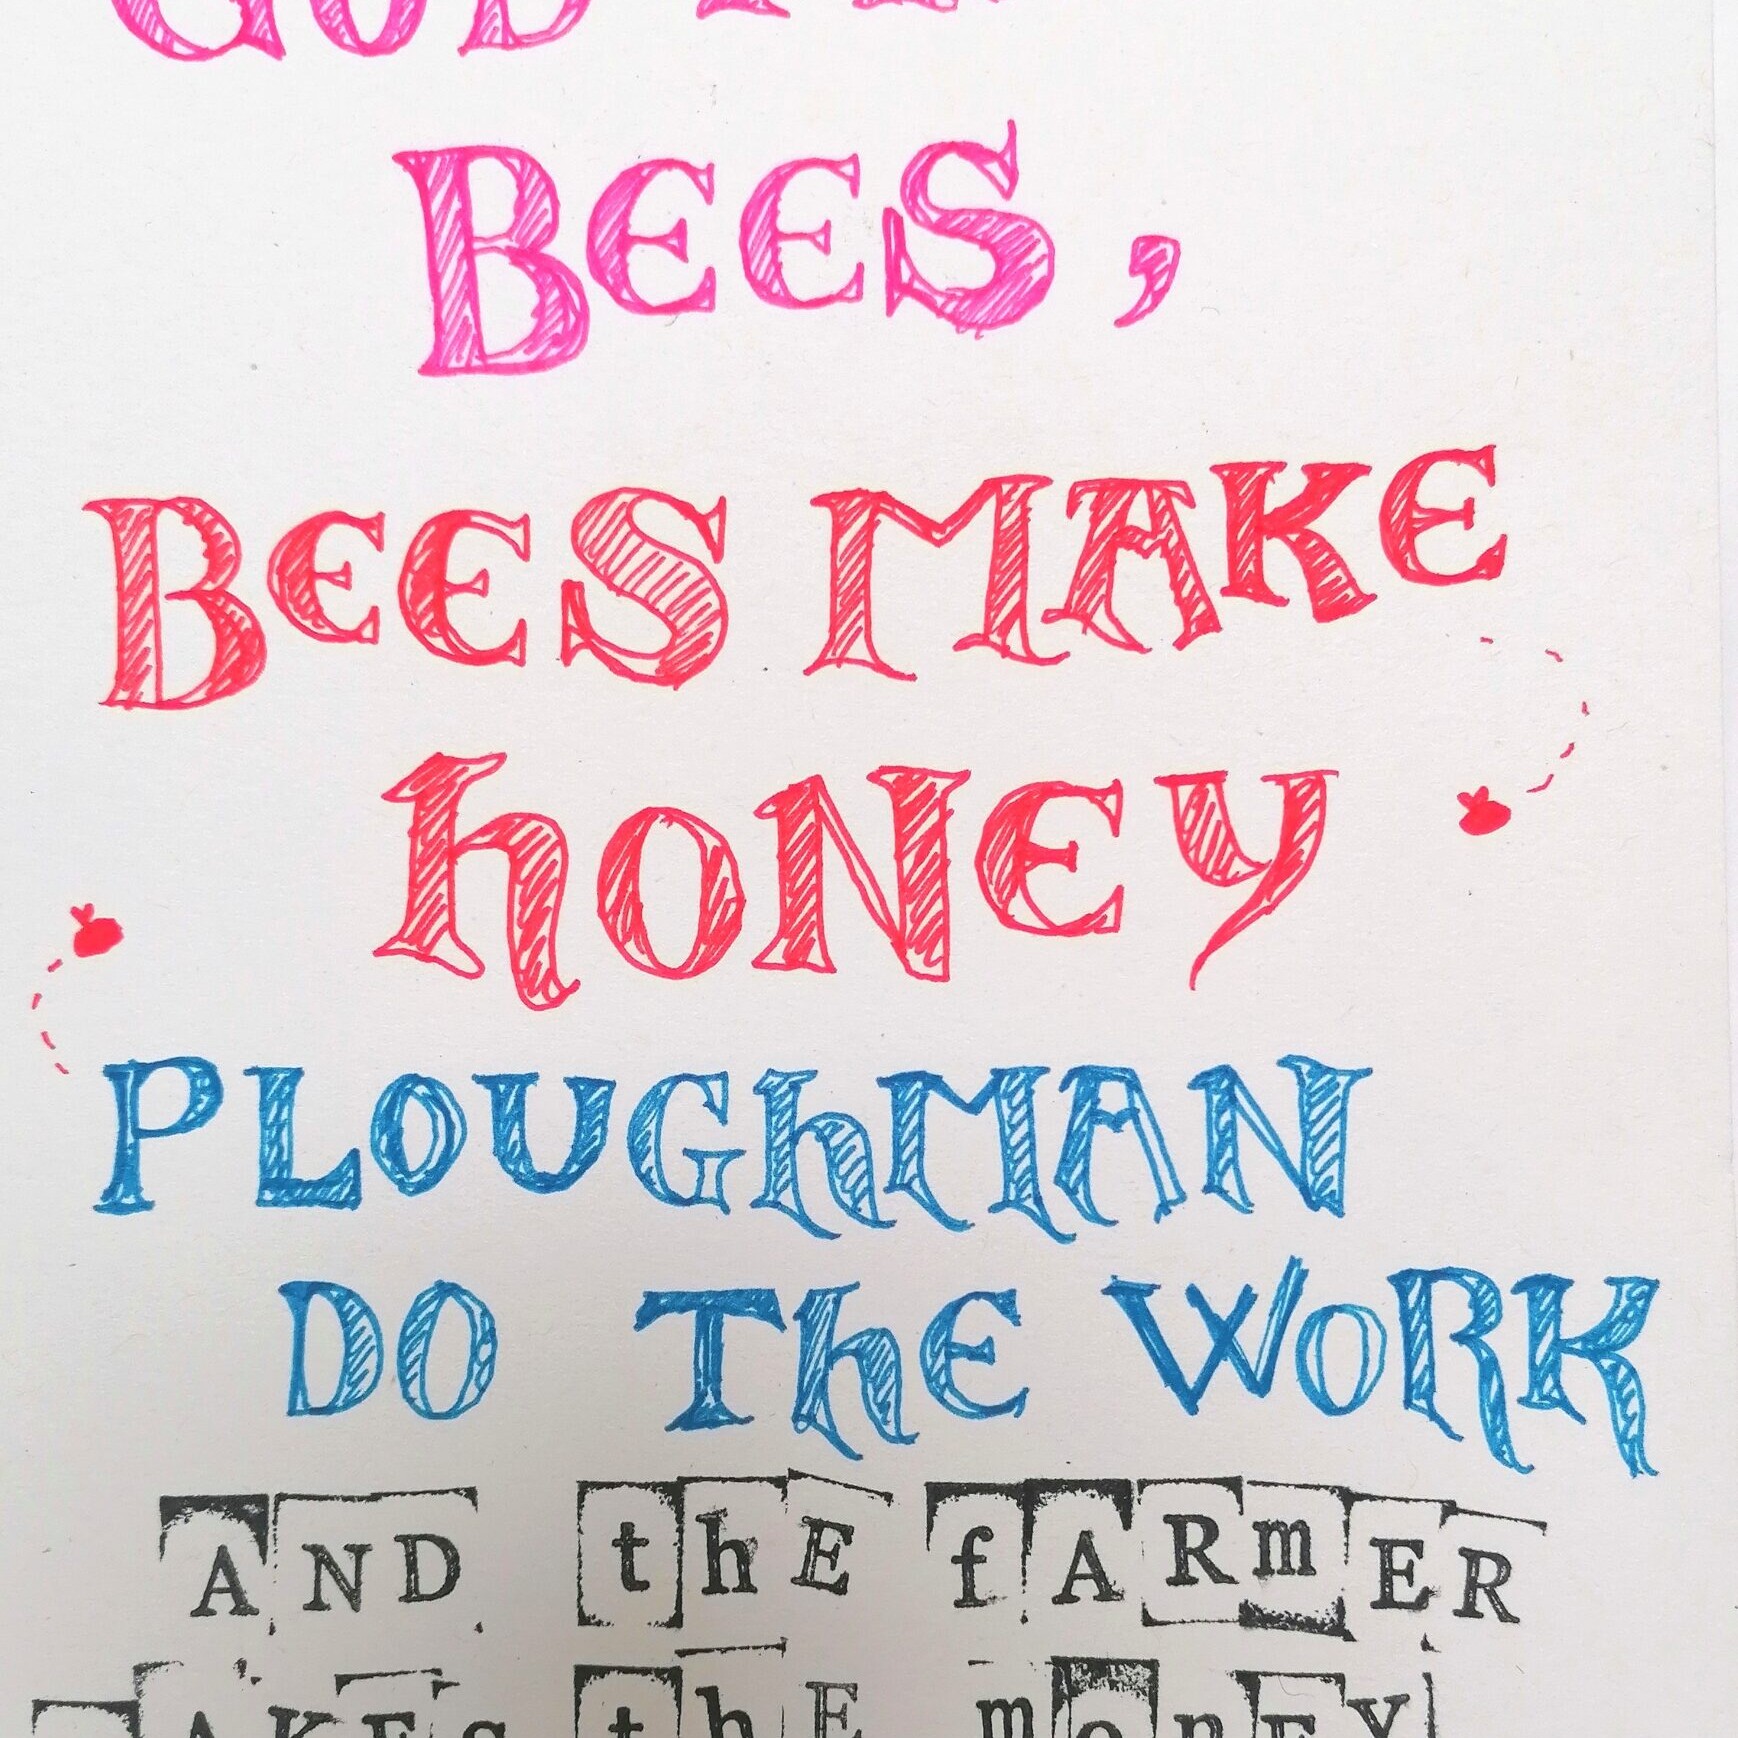 GOD
BEES,
BEES MAKE
hONEY
PLOUGhMAN
DO ThE WORK
AND thE fARmER
thE monEY